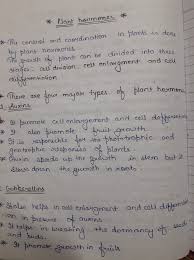 * Plant hormones *
* The control and coordination in plants is done
by plant hormones
* The growth of plant can be divided into three
stages cell division, cell enlargement and cell
differentiation
* There are four major types of plant hormones
Auxins
It promote cell enlargement and cell differentiation
It also promote fruit growth
It is responsible for the phototropic and
geotropic responses of plants
Auxin speeds up the growth in stem but it
slows down the growth in roots.
Gibberellins
It also helps in cell enlargement and cell differentiation
in presence of auxins
It helps in breaking the dormancy of
seeds and buds
It promote growth in fruits